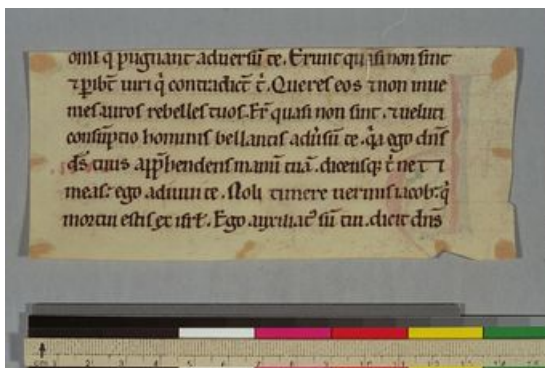 om̄i q̄ pugnant adversū te. Erunt quasi non sint
⁊ p̄ibt̄ uiri q̄ contradict̄ t̄. Queres eos ⁊ non inue
nies uiros rebelles tuos. Er̄t quasi non sint. ⁊ ueluti
consūptio hominis bellantis adūsū te. q̄a ego dn̄s
d̄s tuus app̄hendens manū tuā. dicensq; t̄ ne t i
meas: ego adiuui te. Noli timere uermis iacob. q̄
mortui estis ex isrl̄. Ego auxiliat᷒ sū tui. dicit dn̄s